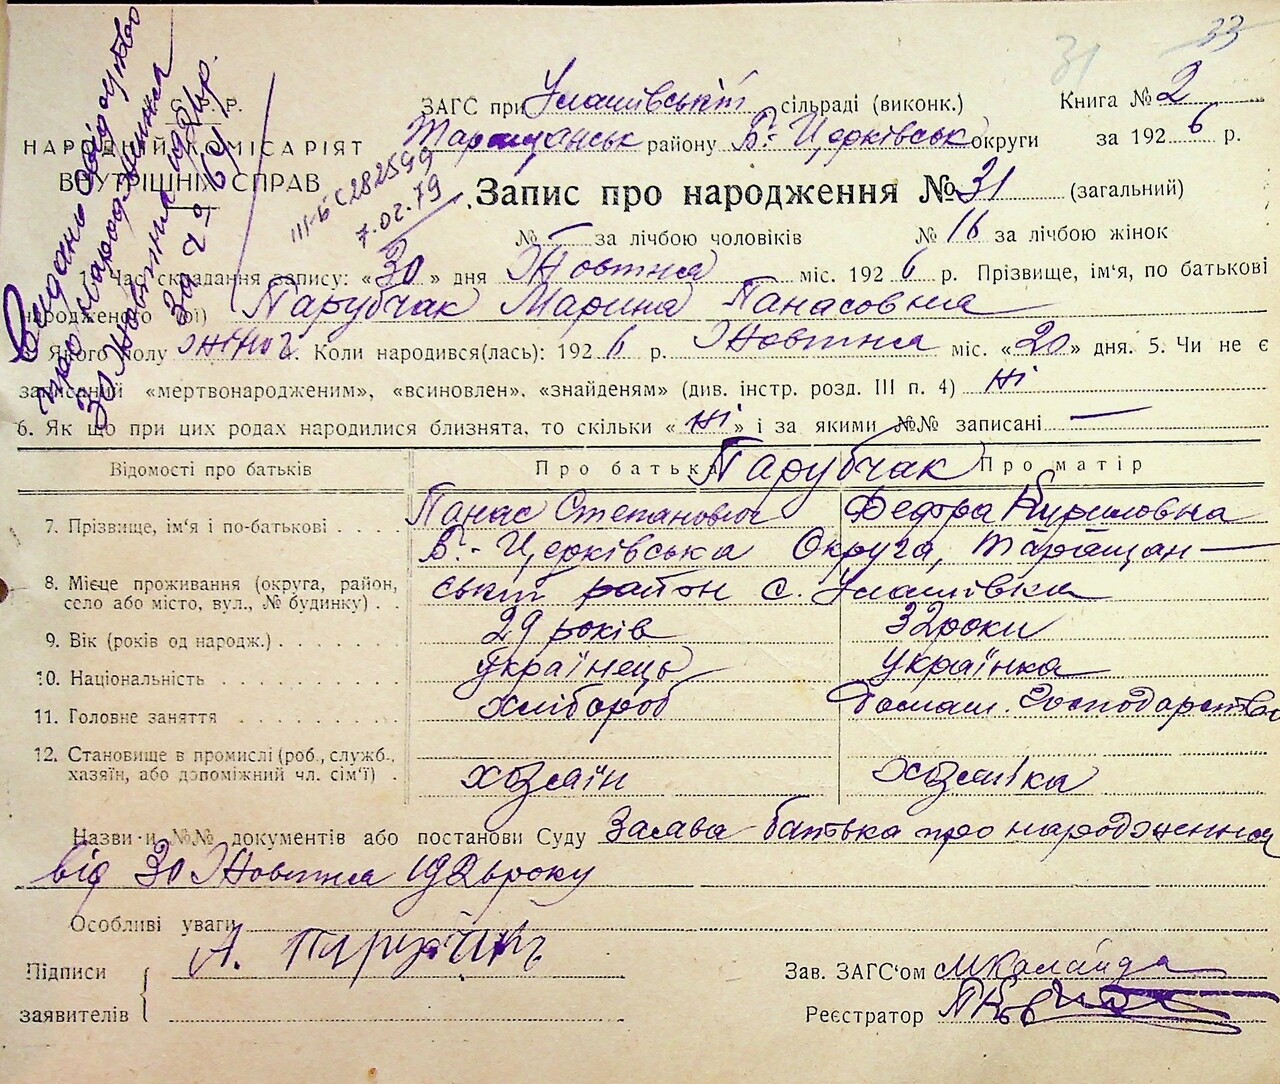 31 33
Видано свідоцтво
про народження
30 Жовтня 1926 р.
за ч.
У.С.Р.Р.
НАРОДНІЙ КОМІСАРІЯТ
ВНУТРІШНІХ СПРАВ
III-БС 282599
7.02.79
ЗАГС при Улашівській сільраді (виконк.) Книга № 2
Таращанськ району Б.-Церківськ округи за 1926 р.
Запис про народження № 31 (загальний)
№ — за лічбою чоловіків № 16 за лічбою жінок
1. Час складання запису: «30» дня Жовтня міс. 1926 р. Прізвище, ім'я, по батькові
народженого (ої) Парубчак Марина Панасовна
Якого полу жіноч. Коли народився(лась): 1926 р. Жовтня міс. «20» дня. 5. Чи не є
записаний «мертвонародженим», «всиновлен», «знайденям» (див. інстр. розд. III п. 4) Ні
6. Як що при цих родах народилися близнята, то скільки «Ні» і за якими №№ записані —
Відомості про батьків Про батька Парубчак Про матір
7. Прізвище, ім'я і по-батькові . . Панас Степанович Федора Кириловна
Б.-Церківська Округа, Таращан-
8. Місце проживання (округа, район, ський район с. Улашівка
село або місто, вул., № будинку) . .
9. Вік (років од народж.) . . . . . . . 29 років 32 роки
10. Національність . . . . . . . українець українка
11. Головне заняття . . . . . . . . . хлібороб Домаш. Господарство
12. Становище в промислі (роб., служб.,
хазяїн, або допоміжний чл. сім'ї) . хозяїн хозяйка
Назви и №№ документів або постанови Суду Заява батька про народження
від 30 Жовтня 1926 року
Особливі уваги
А. Парубчак
Підписи Зав. ЗАГС'ом
заявителів Реєстратор